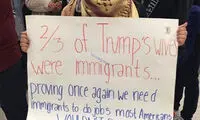 2/3 of Trump's wives
were immigrants...
proving once again we need
immigrants to do jobs most Americans